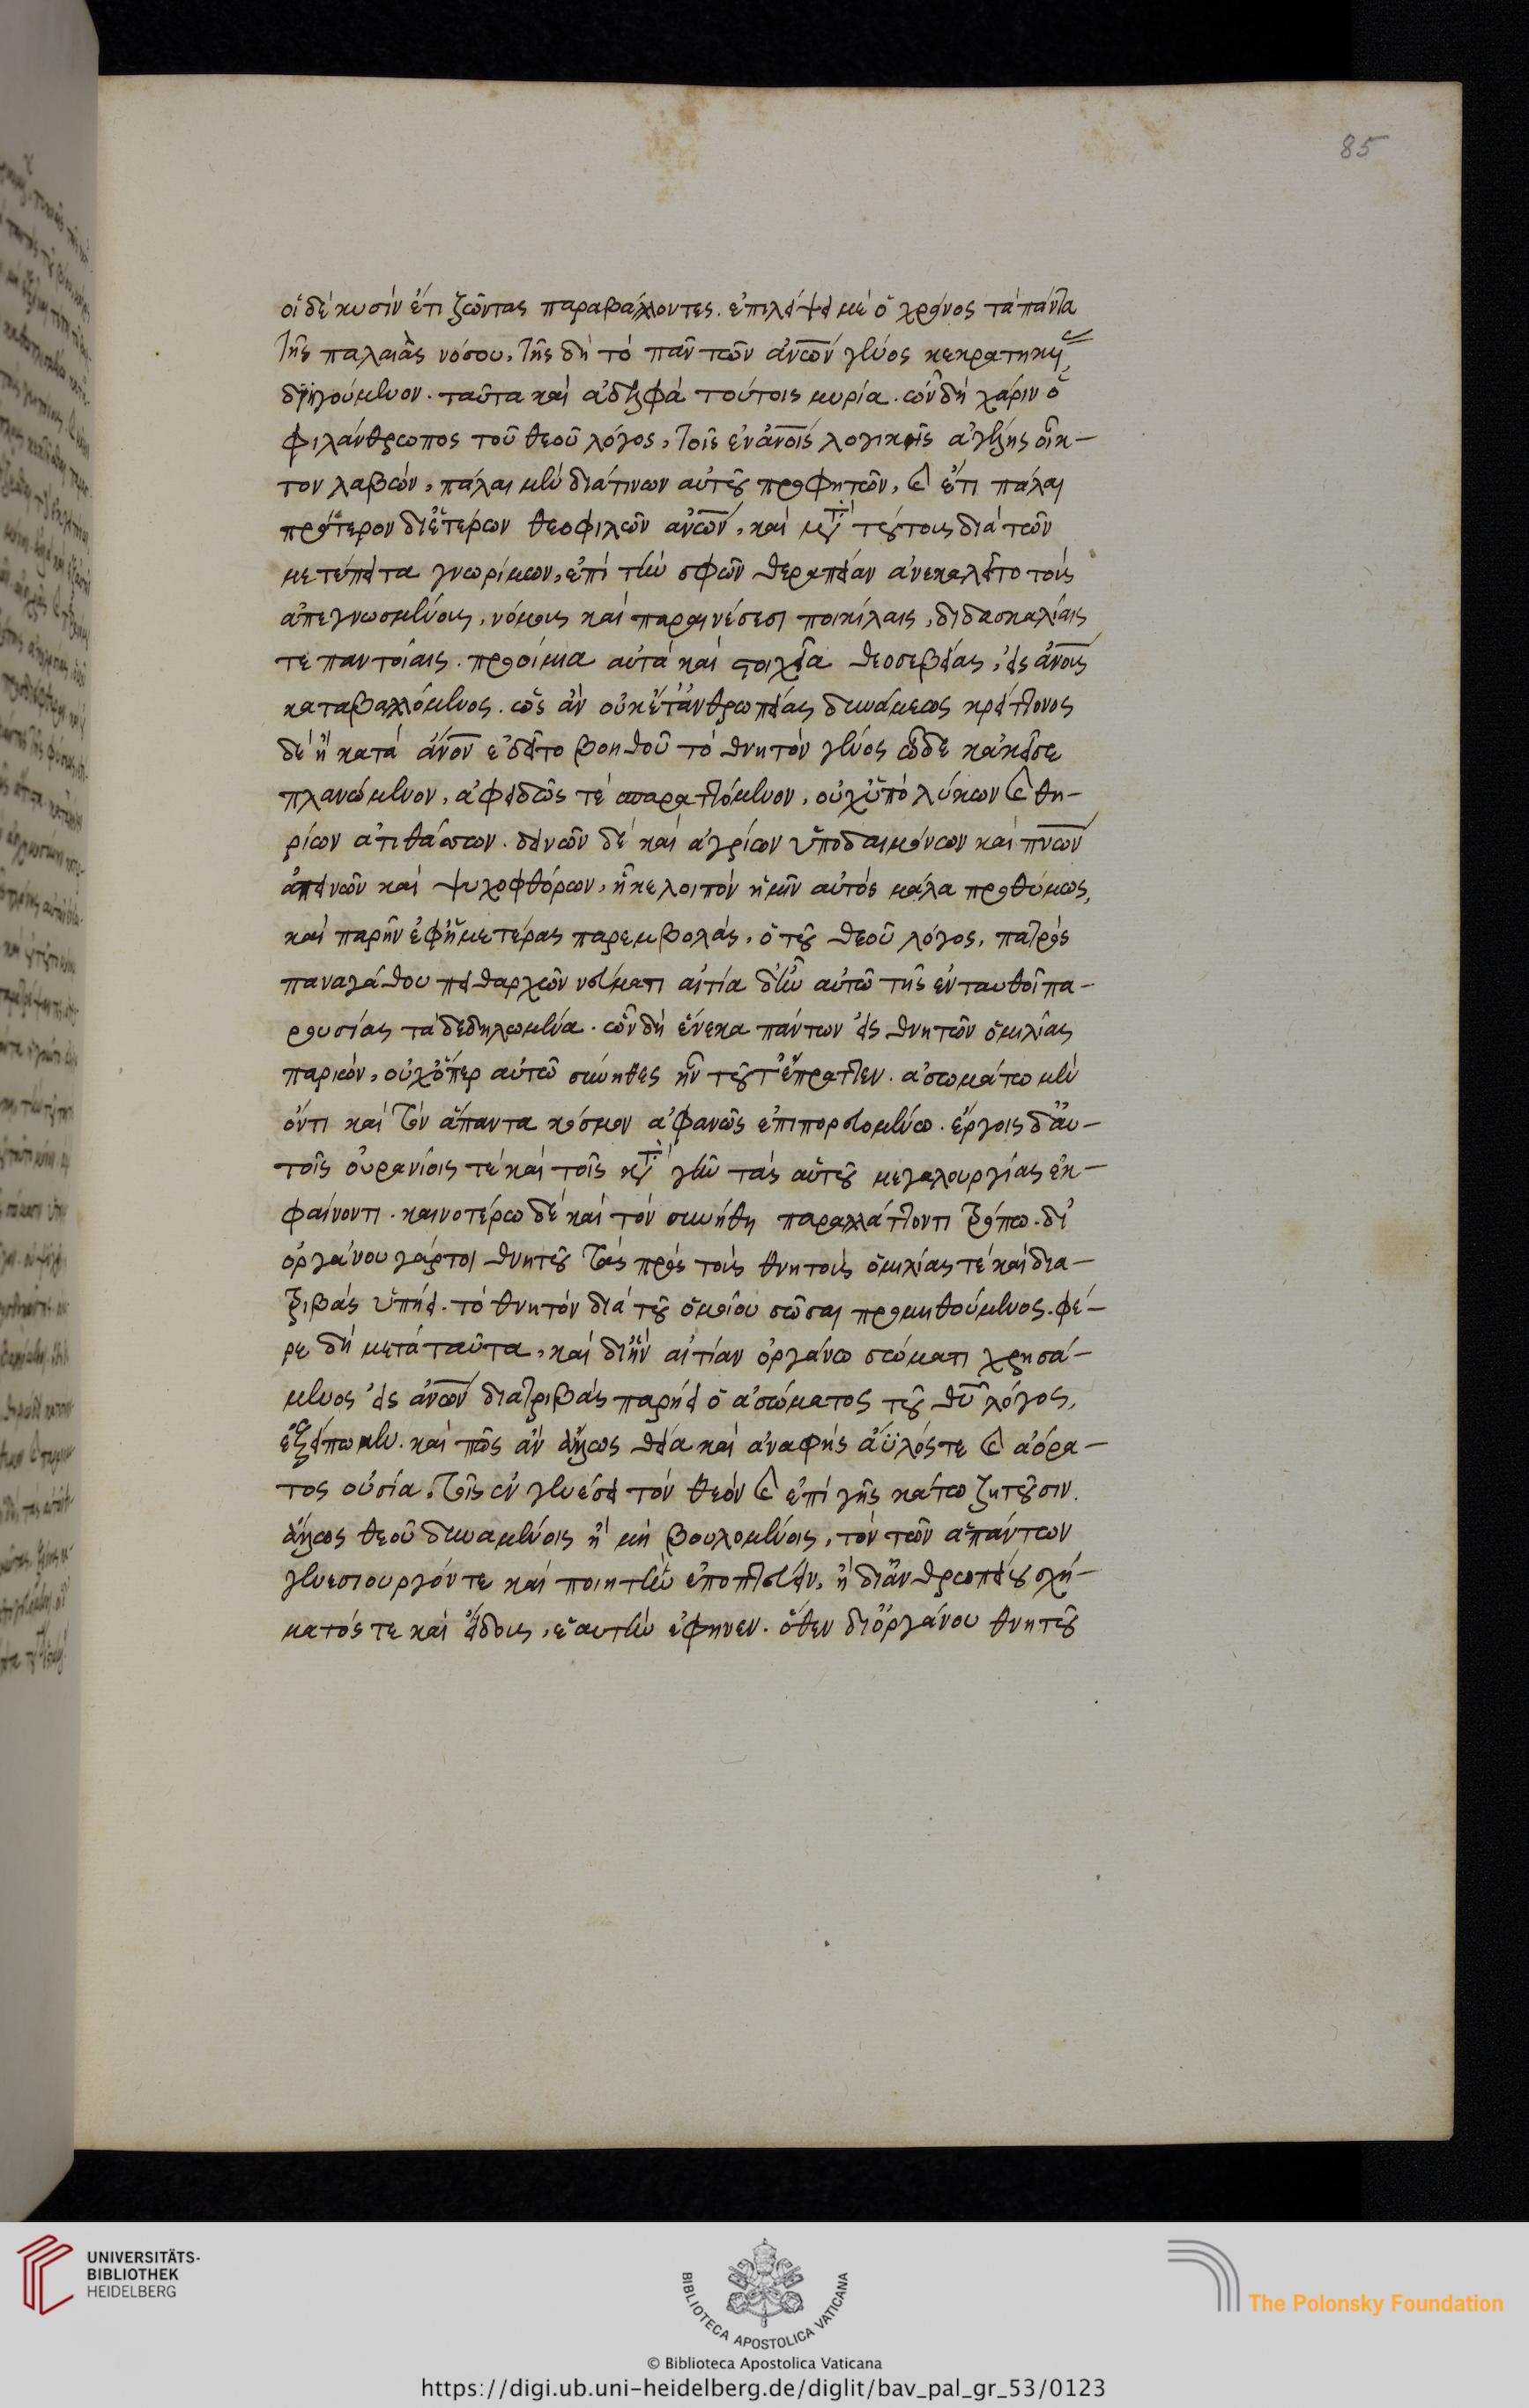 85
οἱ δὲ κυσὶν ἔτι ζῶντας παραβάλλοντες. ἐπιλείψει με ὁ χρόνος τὰ πάντα
τῆς παλαιᾶς νόσου, τῆς δὴ τὸ πᾶν τῶν ἀν̅ω̅ν γένος κεκρατηκυί
διηγούμενον. ταῦτα καὶ ἀδελφὰ τούτοις μυρία. ὧν δὴ χάριν ὁ
φιλάνθρωπος τοῦ θεοῦ λόγος, τοῖς ἐν ἀν̅ο̅ι̅ς λογικαῖς ἀγέλης οἶκ-
τον λαβὼν, πάλαι μὲν διά τινων αὐτοῦ προφητῶν, καὶ ἔτι πάλαι
πρότερον δι' ἑτέρων θεοφιλῶν ἀν̅ω̅ν, καὶ μετὰ τούτους διὰ τῶν
μετέπειτα γνωρίμων, ἐπὶ τὴν σφῶν θεραπείαν ἀνεκαλεῖτο τοὺς
ἀπεγνωσμένους, νόμοις καὶ παραινέσεσι ποικίλαις, διδασκαλίαις
τε παντοίαις. προοίμια αὐτὰ καὶ στοιχεῖα θεοσεβείας, εἰς ἀν̅ο̅υ̅ς
καταβαλλόμενος. ὡς ἂν οὐκέτ' ἀνθρωπείας δυνάμεως κρείττονος
δὲ ἢ κατὰ ἄν̅ο̅ν ἐδεῖτο βοηθοῦ τὸ θνητὸν γένος ὧδε κἀκεῖσε
πλανώμενον, ἀφειδῶς τὲ σπαραττόμενον, οὐχ ὑπὸ λύκων καὶ θη-
ρίων ἀτιθάσσων. δεινῶν δὲ καὶ ἀγρίων ὑπὸ δαιμόνων καὶ πν̅ω̅ν
ἀπεινῶν καὶ ψυχοφθόρων, ἧκε λοιπὸν ἡμῖν αὐτὸς μάλα προθύμως,
καὶ παρῆν ἐφ' ἡμετέρας παρεμβολὰς, ὁ τοῦ θεοῦ λόγος, πατρὸς
παναγάθου πειθαρχῶν νεύματι αἰτία δ' ἦν αὐτῶ τῆς ἐνταυθοῖ πα-
ρουσίας τὰ δεδηλωμένα. ὧν δὴ ἕνεκα πάντων εἰς θνητῶν ὁμιλίας
παριὼν, οὐχ ὅπερ αὐτῶ σύνηθες ἦν τοῦτ' ἔπραττεν. ἀσωμάτω μὲν
ὄντι καὶ τὸν ἅπαντα κόσμον ἀφανῶς ἐπιπορευομένω. ἔργοις δ' αὐ-
τοῖς οὐρανίοις τὲ καὶ τοῖς κατὰ γῆν τὰς αὐτοῦ μεγαλουργίας ἐκ-
φαίνοντι. καινοτέρω δὲ καὶ τὸν συνήθη παραλλάττοντι τρόπω. δι'
ὀργάνου γάρ τοι θνητοῦ τὰς πρὸς τοὺς θνητοὺς ὁμιλίας τὲ καὶ δια-
τριβὰς ὑπῄει. τὸ θνητὸν διὰ τοῦ ὁμοίου σῶσαι προμηθούμενος. φέ-
ρε δὴ μετὰ ταῦτα, καὶ δι' ἣν αἰτίαν ὀργάνω σώματι χρησά-
μενος εἰς ἀν̅ω̅ν διατριβὰς παρῄει ὁ ἀσώματος τοῦ θ̅υ̅ λόγος,
ἐξείπωμεν. καὶ πῶς ἂν ἄλλως θεία καὶ ἀναφὴς ἄϋλός τε καὶ ἀόρα-
τος οὐσία. τοῖς ἐν γενέσει τὸν θεὸν καὶ ἐπὶ γῆς κάτω ζητοῦσιν.
ἄλλως θεοῦ δυναμένοις ἢ μὴ βουλομένοις, τὸν τῶν ἁπάντων
γενεσιουργόν τε καὶ ποιητὴν ἐποπτεύειν, ἢ δι' ἀνθρωπείου σχή-
ματός τε καὶ εἴδους, ἑαυτὴν ἔφηνεν. ὅθεν δι' ὀργάνου θνητοῦ
UNIVERSITÄTS-
BIBLIOTHEK
HEIDELBERG
BIBLIOTECA APOSTOLICA VATICANA
The Polonsky Foundation
© Biblioteca Apostolica Vaticana
https://digi.ub.uni-heidelberg.de/diglit/bav_pal_gr_53/0123